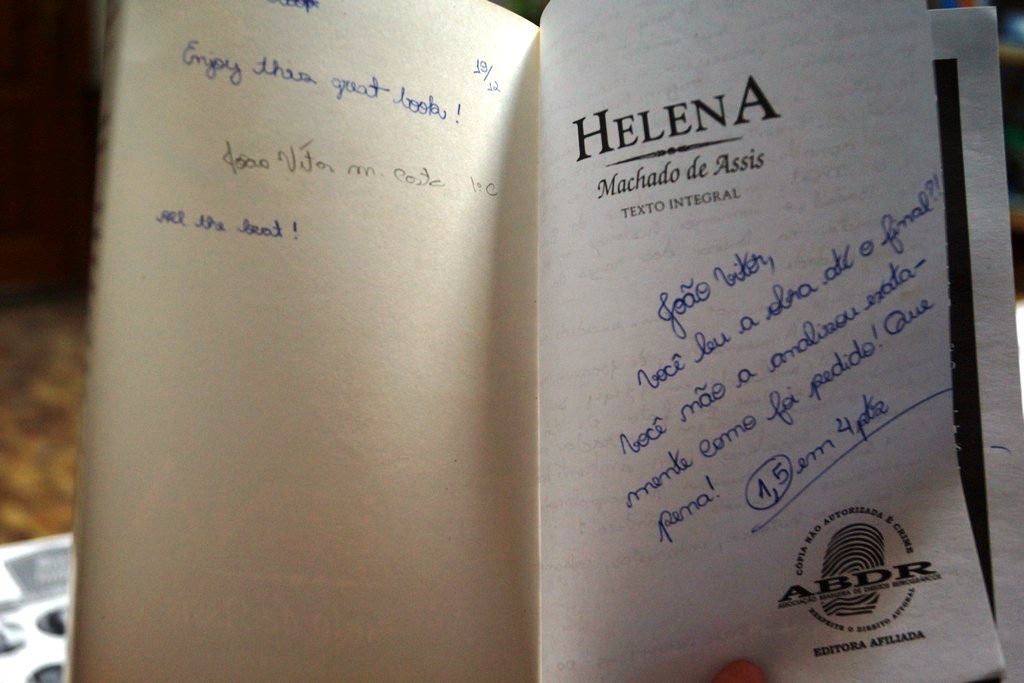 Enjoy this great book!
19/12
João Vítor M. Costa 1ºC
All the best!
HELENA
Machado de Assis
TEXTO INTEGRAL
João Vitor,
Você leu a obra até o final?!
Você não a analisou exata-
mente como foi pedido! Que
pena! 1,5 em 4 pts
CÓPIA NÃO AUTORIZADA É CRIME
ABDR
ASSOCIAÇÃO BRASILEIRA DE DIREITOS REPROGRÁFICOS
RESPEITE O DIREITO AUTORAL
EDITORA AFILIADA